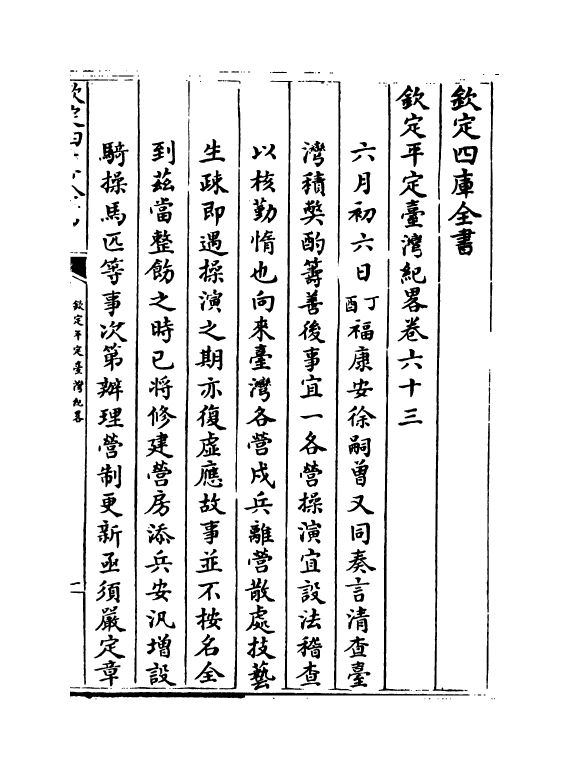 欽定四庫全書
欽定平定臺灣紀畧卷六十三
六月初六日丁酉福康安徐嗣曾又同奏言清查臺
灣積獘酌籌善後事宜一各營操演宜設法稽查
以核勤惰也向來臺灣各營戍兵離營散處技藝
生疎即遇操演之期亦復虛應故事並不按名全
到茲當整飭之時已将修建營房添兵安汛增設
騎操馬匹等事次第辦理營制更新亟須嚴定章
欽定平定臺灣紀畧